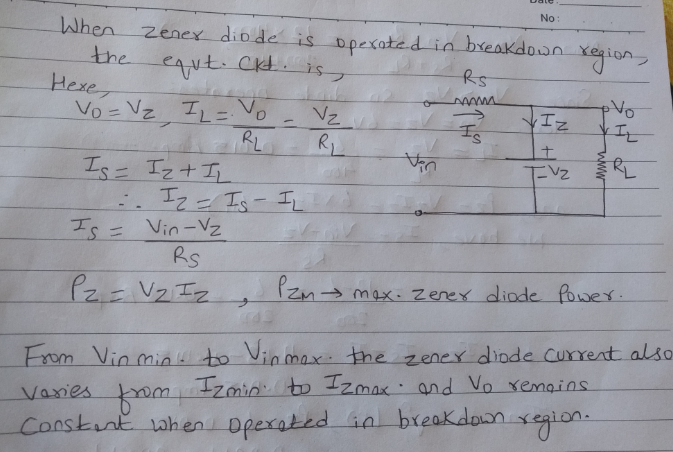 Date:
No:
When zener diode is operated in breakdown region,
the eqvt. ckt. is,
Here,
V0 = VZ, IL = V0/RL = VZ/RL
IS = IZ + IL
∴ IZ = IS - IL
IS = Vin-VZ/RS
PZ = VZ IZ , PZM → max. zener diode Power.
RS
IS
Vin
IZ
+
VZ
V0
IL
RL
From Vin min. to Vin max. the zener diode current also
varies from IZmin. to IZmax. and V0 remains
constant when operated in breakdown region.